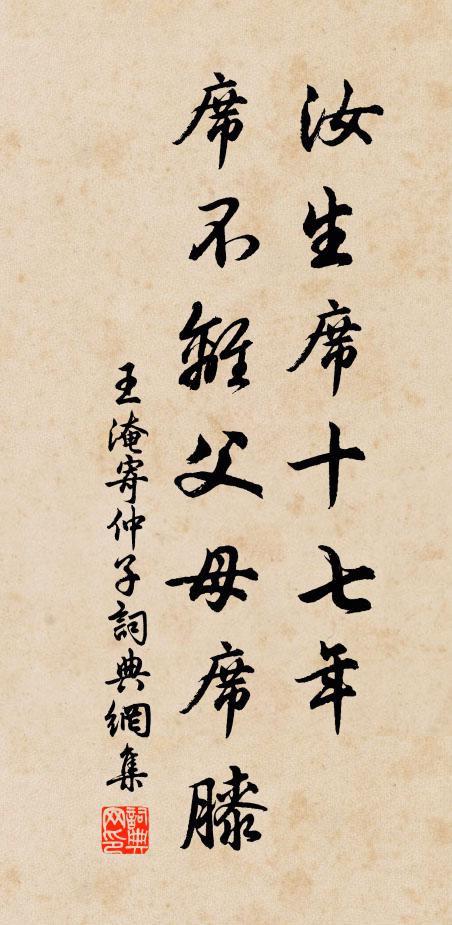 汝生席十七年
席不離父母席膝
王淹寄仲子詞典網集
詞典网印